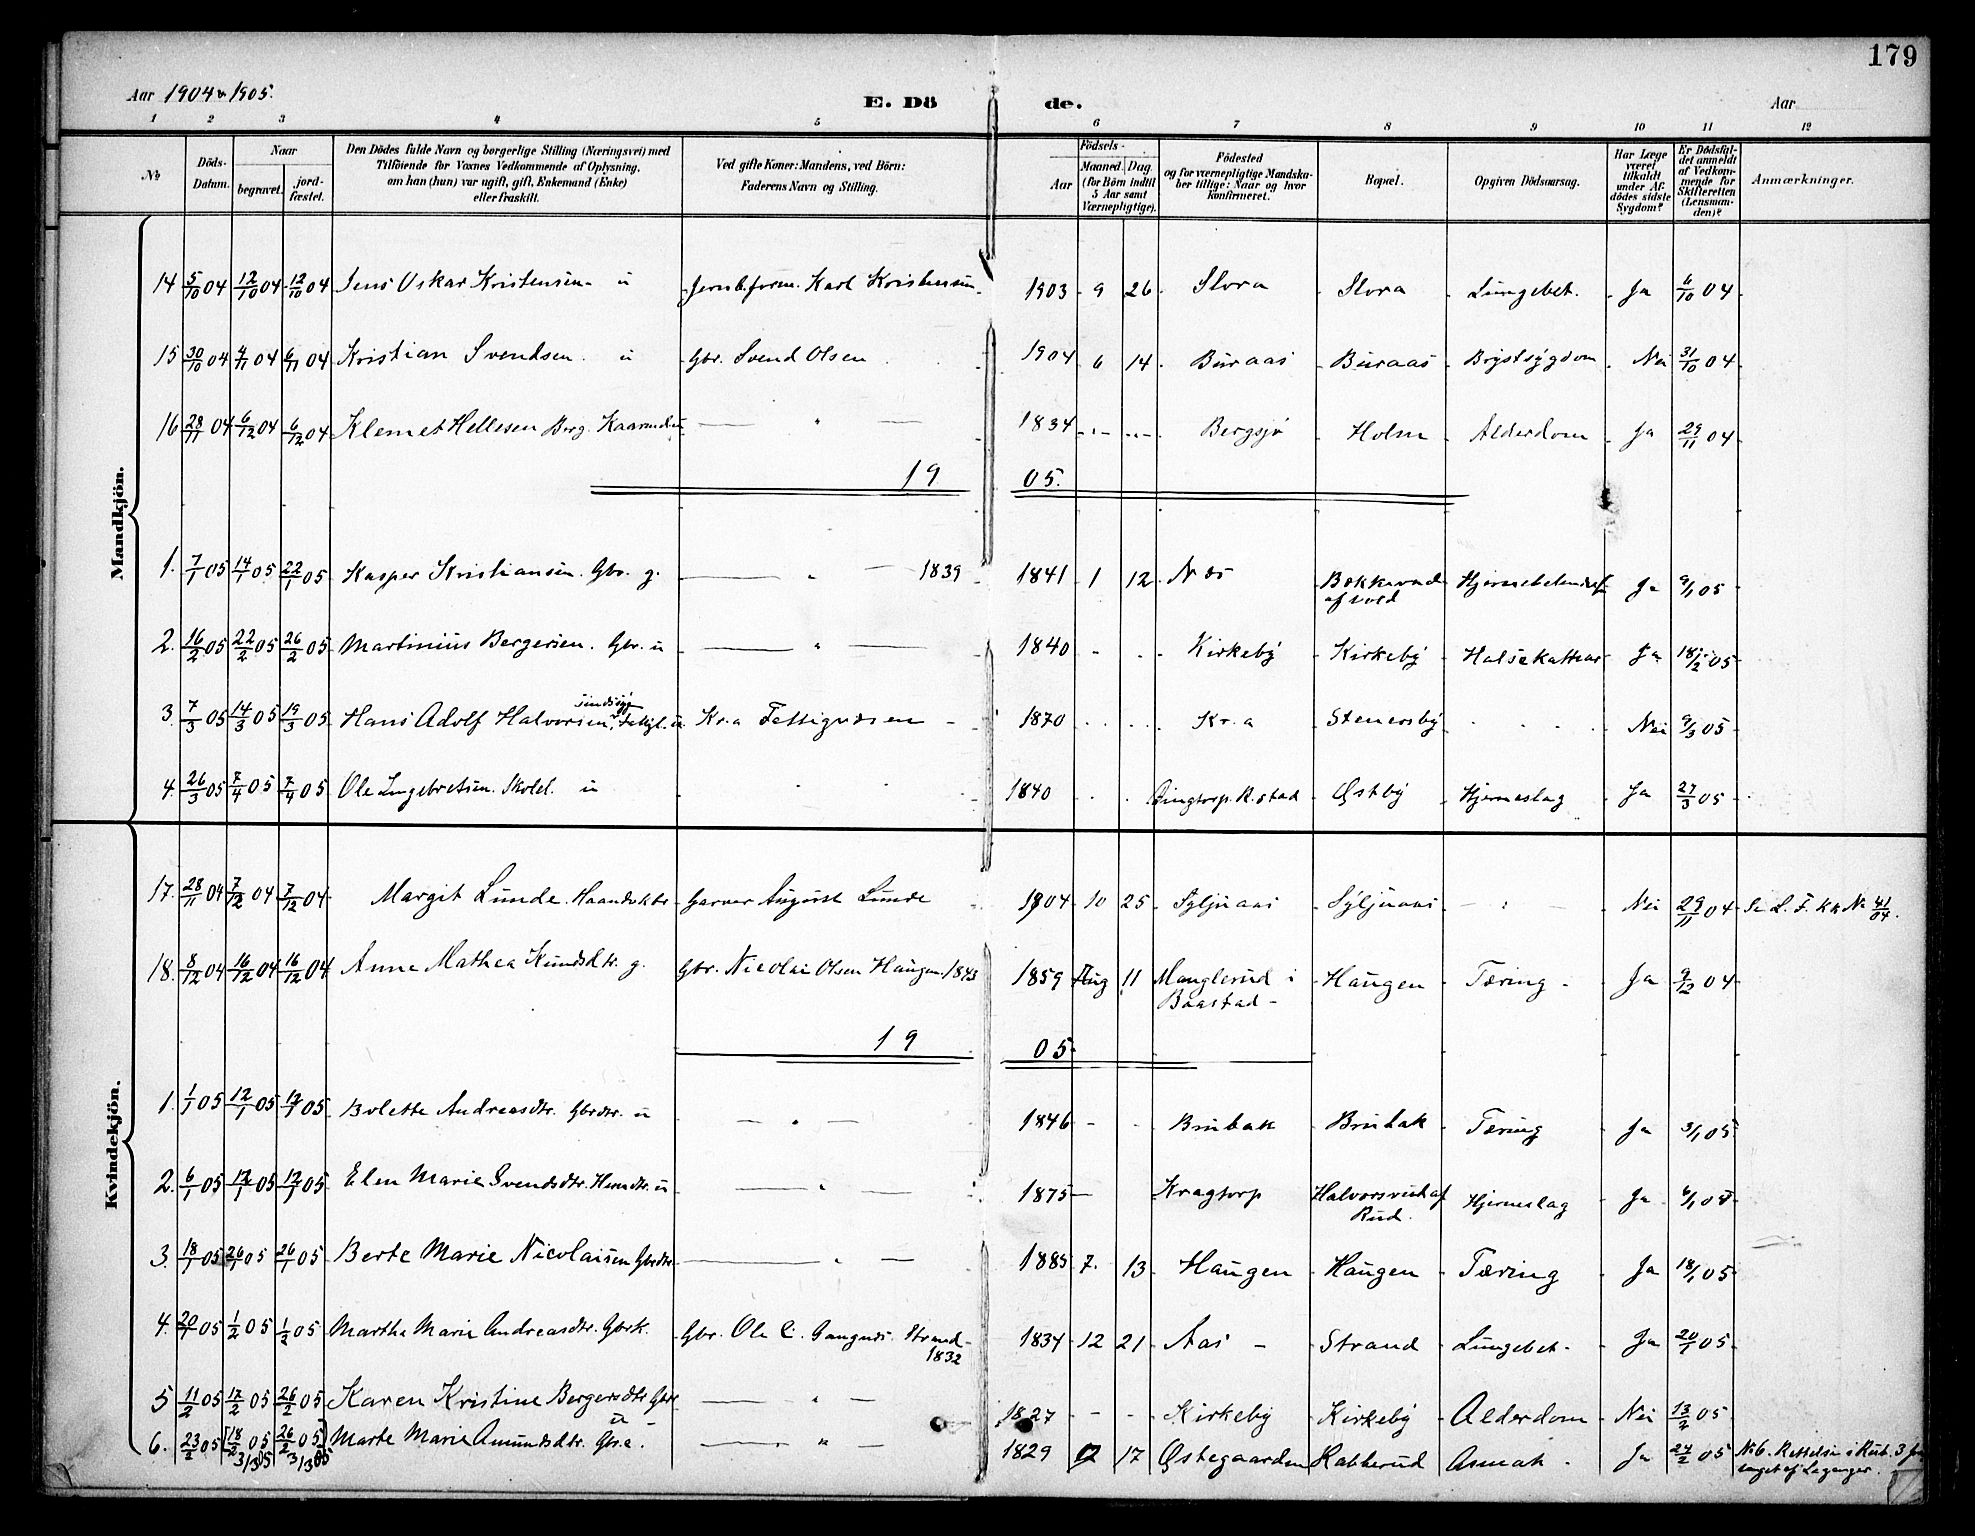 179
Aar 1904 & 1905.
E. Dö de.
Aar
1 2 3 4 5 6 7 8 9 10 11 12
No
Döds-Datum.
Naar
begravet.
jord-fæstet.
Den Dödes fulde Navn og borgerlige Stilling (Næringsvei) med
Tilföiende for Voxnes Vedkommende af Oplysning,
om han (hun) var ugift, gift, Enkemand (Enke)
eller fraskilt.
Ved gifte Koner: Mandens, ved Börn:
Faderens Navn og Stilling.
Födsels-
Aar
Maaned. Dag.
(for Börn indtil
5 Aar samt
Værnepligtige).
Födested
og for værnepligtige Mandska-
ber tillige: Naar og hvor
konfirmeret.
Bopæl.
Opgiven Dödsaarsag.
Har Læge
været
tilkaldt
under Af-
dödes sidste
Sygdom?
Er Dödsfal-
det anmeldt
af Vedkom-
mende for
Skifteretten
(Lensman-
den)?
Anmærkninger.
Mandkjön.
14 5/10 04 12/10 04 12/10 04 Jens Oskar Kristensen u Jernb.form. Karl Kristensen 1903 9 26 Slora Slora Lungebet. Ja 6/10 04
15 30/10 04 6/11 04 Kristian Svendsen u Gbr. Svend Olsen 1904 6 14 Buraas Buraas Brystsygdom Nei 31/10 04
16 28/11 04 6/12 04 6/12 04 Klemet Hellesen Berg. 1834 Bergsjö Holm Alderdom Ja 29/11 04
19 05.
1. 7/1 05 14/1 05 22/1 05 Kasper Kristiansen. Gbr. g. 1839 1841 1 12 Næs af Ja 9/1 05
2. 16/2 05 22/2 05 26/2 05 Martinius Bergersen. Gbr. u 1840 Kirkeby Kirkeby Halsekatthar Ja 18/2 05
sindssyg
3. 7/3 05 14/3 05 19/3 05 Hans Adolf Halvorsen, u Kr.a Fattigvæsen 1870 Kr.a Stenersby Nei 9/3 05
4. 26/3 05 7/4 05 7/4 05 Ole Ingebretsen. u 1840 Østby Hjerneslag Ja 27/3 05
Kvindekjön.
17. 28/11 04 7/12 04 7/12 04 Margit Lunde. Garver August Lunde 1904 10 25 Syljuaas Syljuaas Nei 29/11 04 Se L. F. kk No 41/04.
18. 8/12 04 16/12 04 16/12 04 Anne Mathea Knudsdtr. g. Gbr. Nicolai Olsen Haugen. 1843 1859 Aug 11 Manglerud i
Baastad Haugen Tæring Ja 9/12 04
19 05
1. 1/1 05 12/1 05 12/1 05 Bolette Andreasdtr. Gbrdtr. u 1846 Brubak Brubak Tæring Ja 3/1 05
2. 6/1 05 12/1 05 12/1 05 Elen Marie Svendsdtr. u 1875 Kragtorp Halvorsrud af
Rud. Hjerneslag Ja 05
3. 18/1 05 26/1 05 26/1 05 Berte Marie Nicolaisen Gbrdtr. 1885 7. 13 Haugen Haugen Tæring Ja 18/1 05
4. 20/1 05 1/2 05 1/2 05 Martha Marie Andreasdtr. Gbrk. Gbr. Ole C. Strand
1832 1834 12 21 Aas Strand Lungebet. Ja 20/1 05
5 11/2 05 17/2 05 26/2 05 Karen Kristine Bergersdtr. u 1827 Kirkeby Kirkeby Alderdom Nei 13/2 05
6. 23/2 05 [18/2 05 26/2 05] Marte Marie Amundsdtr. 1829 12 17 Østegaarden Kabberud Ja 24/2 05 No 6. Rettelse i Rub. 3
3/3 05 3/3 05